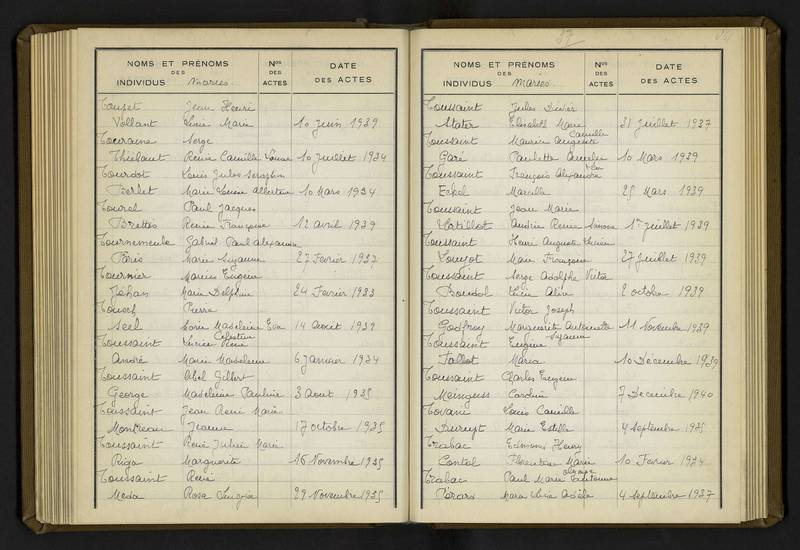 NOMS ET PRÉNOMS DES INDIVIDUS Mariés
Nos DES ACTES
DATE DES ACTES
Touzet Jean Henri
Vollant Lucie Marie 10 Juin 1939
Touraine Serge
Thiébaut Renée Camille Louise 10 Juillet 1934
Tourdot Louis Jules Seraphin
Berlet Marie Lucie Albertine 10 Mars 1934
Tourel Paul Jacques
Brettes Renée Françoise 12 avril 1939
Tournemeule Gabriel Paul Alexandre
Paris Marie Suzanne 27 Fevrier 1937
Tournier Marius Eugène
Jehan Marie Delphine 24 Fevrier 1933
Pierre
Seel Marie Madeleine Eva 14 Août 1939
Toussaint Lucien René Celestin
André Marie Madeleine 6 Janvier 1934
Toussaint Abel Gilbert
George Madeleine Pauline 3 Aout 1935
Toussaint Jean René Marie
Jeanne 17 octobre 1935
Toussaint René Julien Marie
Riga Marguerite 16 Novembre 1935
Toussaint René
Meda Rosa 29 Novembre 1935
37
NOMS ET PRÉNOMS DES INDIVIDUS Mariés
Nos DES ACTES
DATE DES ACTES
Toussaint Jules
Stater Elisabeth Marie 31 Juillet 1937
Toussaint Maurice Auguste Camille
Gari Paulette 10 Mars 1939
Toussaint François Alexandre
Eckel Marcelle 25 Mars 1939
Toussaint Jean Marie
Andrée Renée 1er Juillet 1939
Toussaint Henri Auguste Lucien
Louzot Marie Françoise 27 Juillet 1939
Toussaint Serge Adolphe Victor
Boudol Lucie Aline 2 octobre 1939
Toussaint Victor Joseph
Godfroy Marguerite Antoinette 11 Novembre 1939
Toussaint Eugène Suzanne
Tallot Maria 10 Décembre 1939
Toussaint Charles Eugène
Meinguss Caroline 7 Decembre 1940
Tovani Louis Camille
Marie Estelle 4 Septembre 1935
Trabac Edmond Henry
Contal Florentine Marie 10 Fevrier 1934
Trabac Paul Marie
Pérard Marie Lucie Adèle 4 Septembre 1937